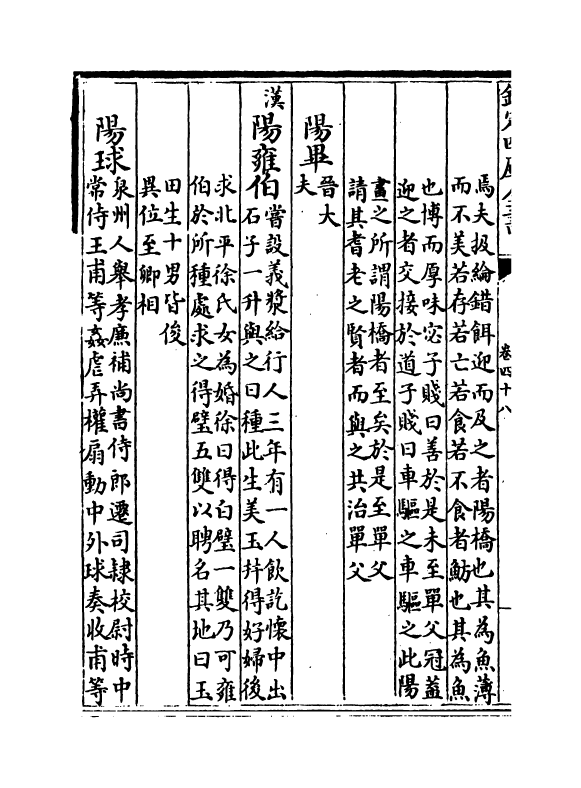 欽定四庫全書
卷四十八
焉夫扱綸錯餌迎而及之者陽橋也其為魚薄
而不美若存若亡若食若不食者魴也其為魚
也博而厚味宓子賤曰善於是未至單父冠蓋
迎之者交接於道子賤曰車驅之車驅之此陽
晝之所謂陽橋者至矣於是至單父
請其耆老之賢者而與之共治單父
陽畢
晉大
夫
漢
陽雍伯
嘗設義漿給行人三年有一人飲訖懷中出
石子一升與之曰種此生美玉并得好婦後
求北平徐氏女為婚徐曰得白璧一雙乃可雍
伯於所種處求之得璧五雙以聘名其地曰玉
田生十男皆俊
異位至卿相
陽球
泉州人舉孝廉補尚書侍郎遷司隸校尉時中
常侍王甫等姦虐弄權扇動中外球奏收甫等